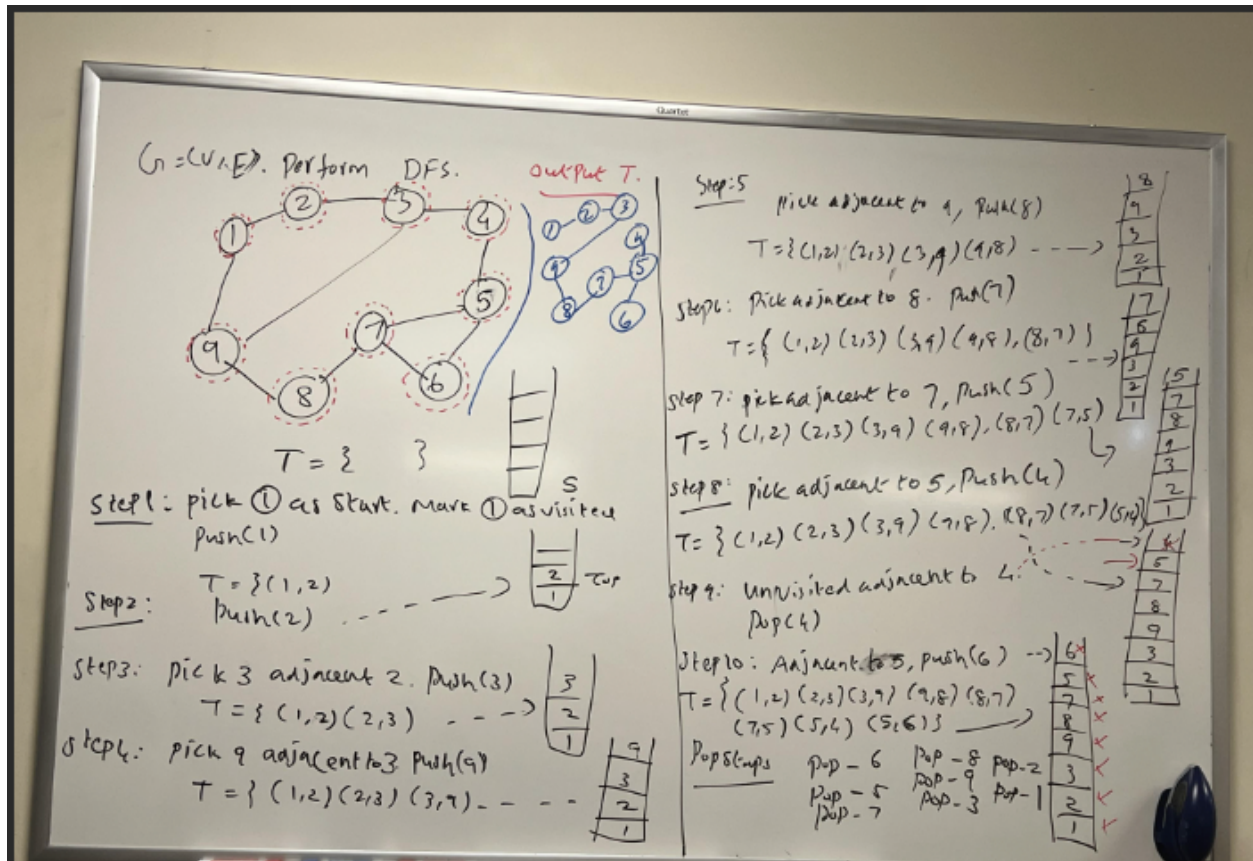 Quartet
G = (V, E). Perform DFS.
Output T.
1
2
3
4
5
6
7
8
9
1
2
3
4
5
6
7
8
9
T = { }
S
Step1: pick ① as Start. Mark ① as visited
Push(1)
T = {(1,2)
Step2: Push(2)
2
1
Top
Step3: pick 3 adjacent 2. Push(3)
T = { (1,2) (2,3)
3
2
1
Step4: pick 9 adjacent to 3 Push(9)
T = { (1,2) (2,3) (3,9)
9
3
2
1
Step:5
pick adjacent to 9, Push(8)
T = {(1,2) (2,3) (3,9) (9,8)
8
9
3
2
1
Step6: Pick adjacent to 8. Push(7)
T = { (1,2) (2,3) (3,9) (9,8), (8,7) }
7
8
9
3
2
1
Step 7: pick adjacent to 7, Push(5)
T = { (1,2) (2,3) (3,9) (9,8), (8,7) (7,5)
5
7
8
9
3
2
1
Step 8: pick adjacent to 5, Push(4)
T = { (1,2) (2,3) (3,9) (9,8), (8,7) (7,5) (5,4)
4
5
7
8
9
3
2
1
Step 9: Unvisited adjacent to 4.
Pop(4)
Step10: Adjacent to 5, push(6)
T = { (1,2) (2,3) (3,9) (9,8) (8,7)
(7,5) (5,4) (5,6)}
6 x
5 x
7 x
8 x
9 x
3 x
2 x
1 x
Pop Steps
Pop - 6
Pop - 5
Pop - 7
Pop - 8
Pop - 9
Pop - 3
Pop - 2
Pop - 1